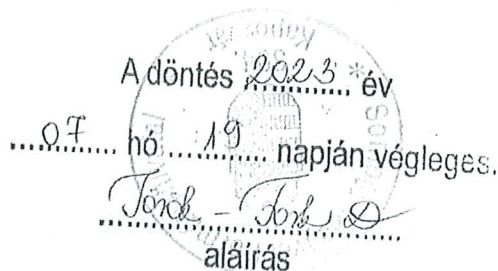 A döntés 2023 év
07 hó 19 napján végleges.
aláírás